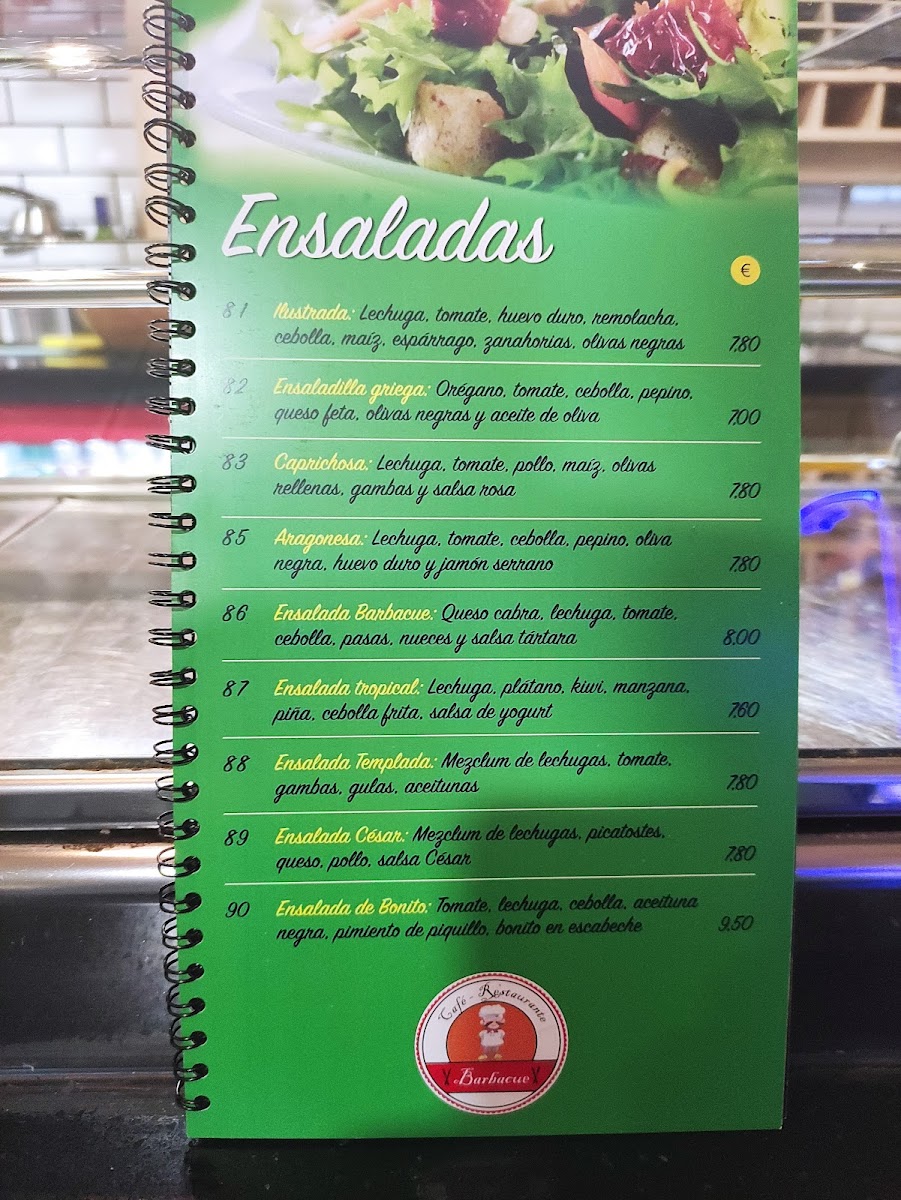 Ensaladas
€
81 Ilustrada: Lechuga, tomate, huevo duro, remolacha,
cebolla, maíz, espárrago, zanahorias, olivas negras 7,80
82 Ensaladilla griega: Orégano, tomate, cebolla, pepino,
queso feta, olivas negras y aceite de oliva 7,00
83 Caprichosa: Lechuga, tomate, pollo, maíz, olivas
rellenas, gambas y salsa rosa 7,80
85 Aragonesa: Lechuga, tomate, cebolla, pepino, oliva
negra, huevo duro y jamón serrano 7,80
86 Ensalada Barbacue: Queso cabra, lechuga, tomate,
cebolla, pasas, nueces y salsa tártara 8,00
87 Ensalada tropical: Lechuga, plátano, kiwi, manzana,
piña, cebolla frita, salsa de yogurt 7,60
88 Ensalada Templada: Mezclum de lechugas, tomate,
gambas, gulas, aceitunas 7,80
89 Ensalada César: Mezclum de lechugas, picatostes,
queso, pollo, salsa César 7,80
90 Ensalada de Bonito: Tomate, lechuga, cebolla, aceituna
negra, pimiento de piquillo, bonito en escabeche 9,50
Café - Restaurante
Barbacue